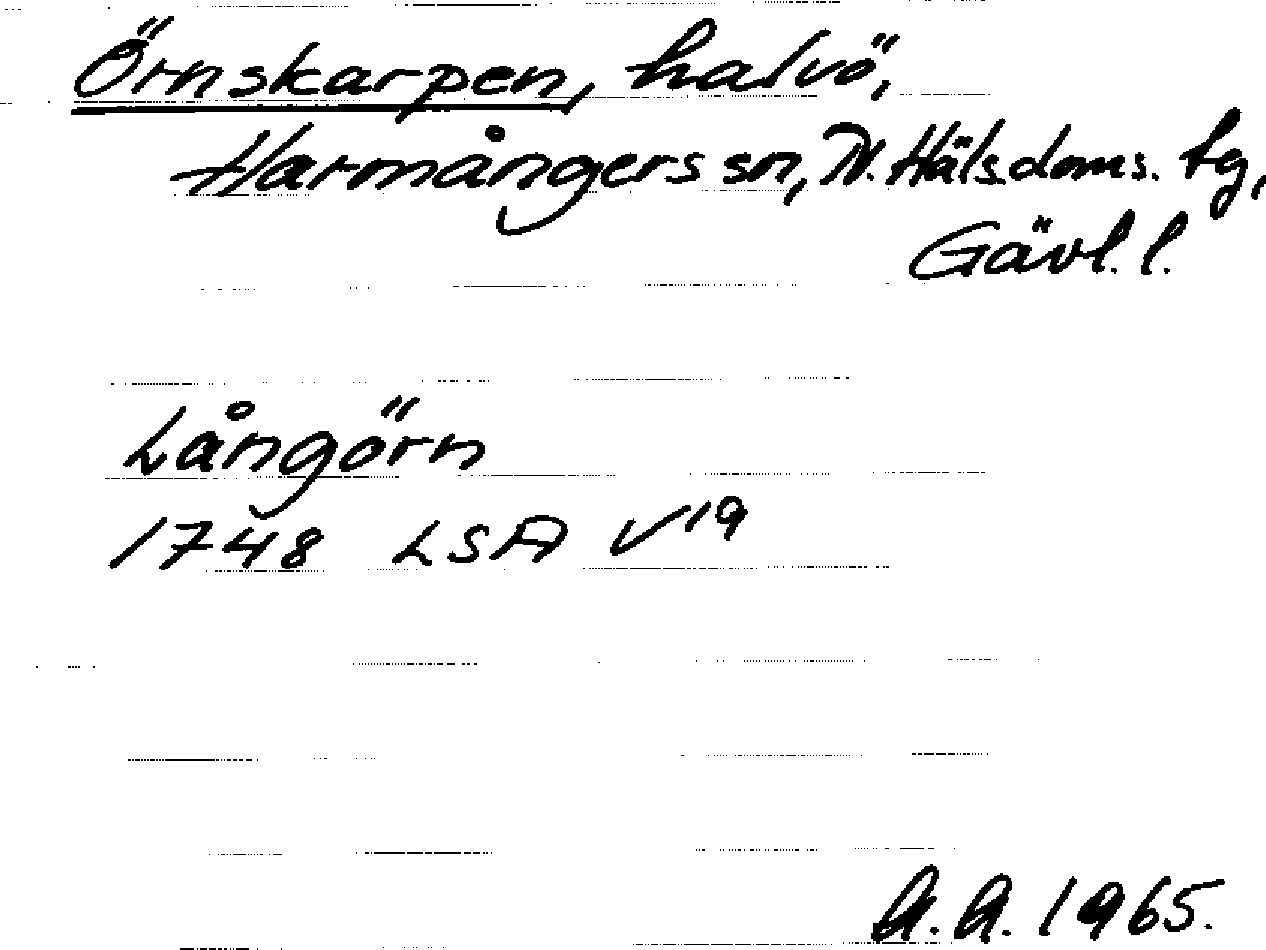 Örnskarpen, halvö,
Harmångers sn, N. Häls. doms. tg,
Gävl. l.
Långörn
1748 LSA V 19
A. A. 1965.